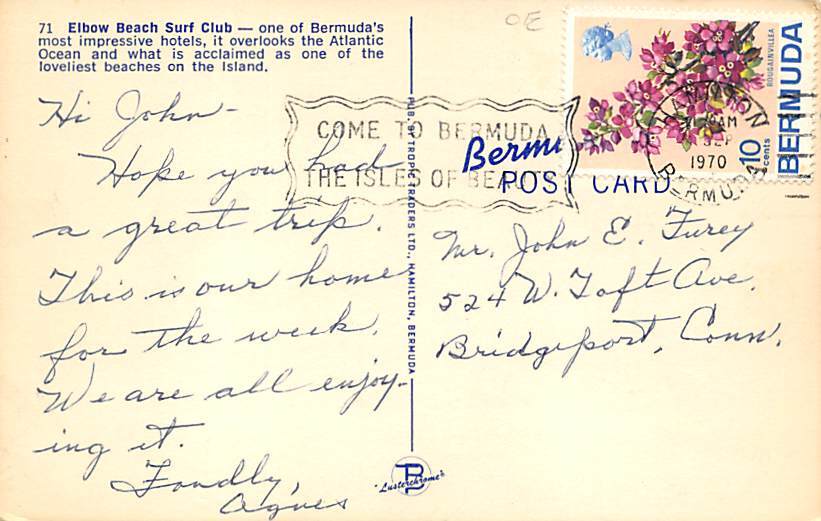 71 Elbow Beach Surf Club — one of Bermuda's
most impressive hotels, it overlooks the Atlantic
Ocean and what is acclaimed as one of the
loveliest beaches on the Island.
Hi John -
Hope you had
a great trip.
This is our home
for the week.
We are all enjoy-
ing it.
Fondly,
Agnes
PUB. BY TROPIC TRADERS LTD., HAMILTON, BERMUDA
Lusterchrome
OE
COME TO BERMUDA
THE ISLES OF BEAUTY
POST CARD
BOUGAINVILLEA
10 cents
BERMUDA
HAMILTON
AM
SEP
1970
BERMUDA
Mr. John E. Furey
524 W. Taft Ave.
Bridgeport, Conn.